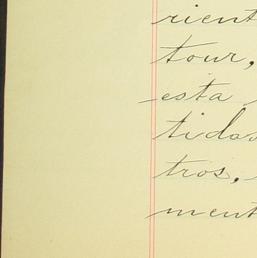 rient
tour,
esta
tidar
tros,
ment